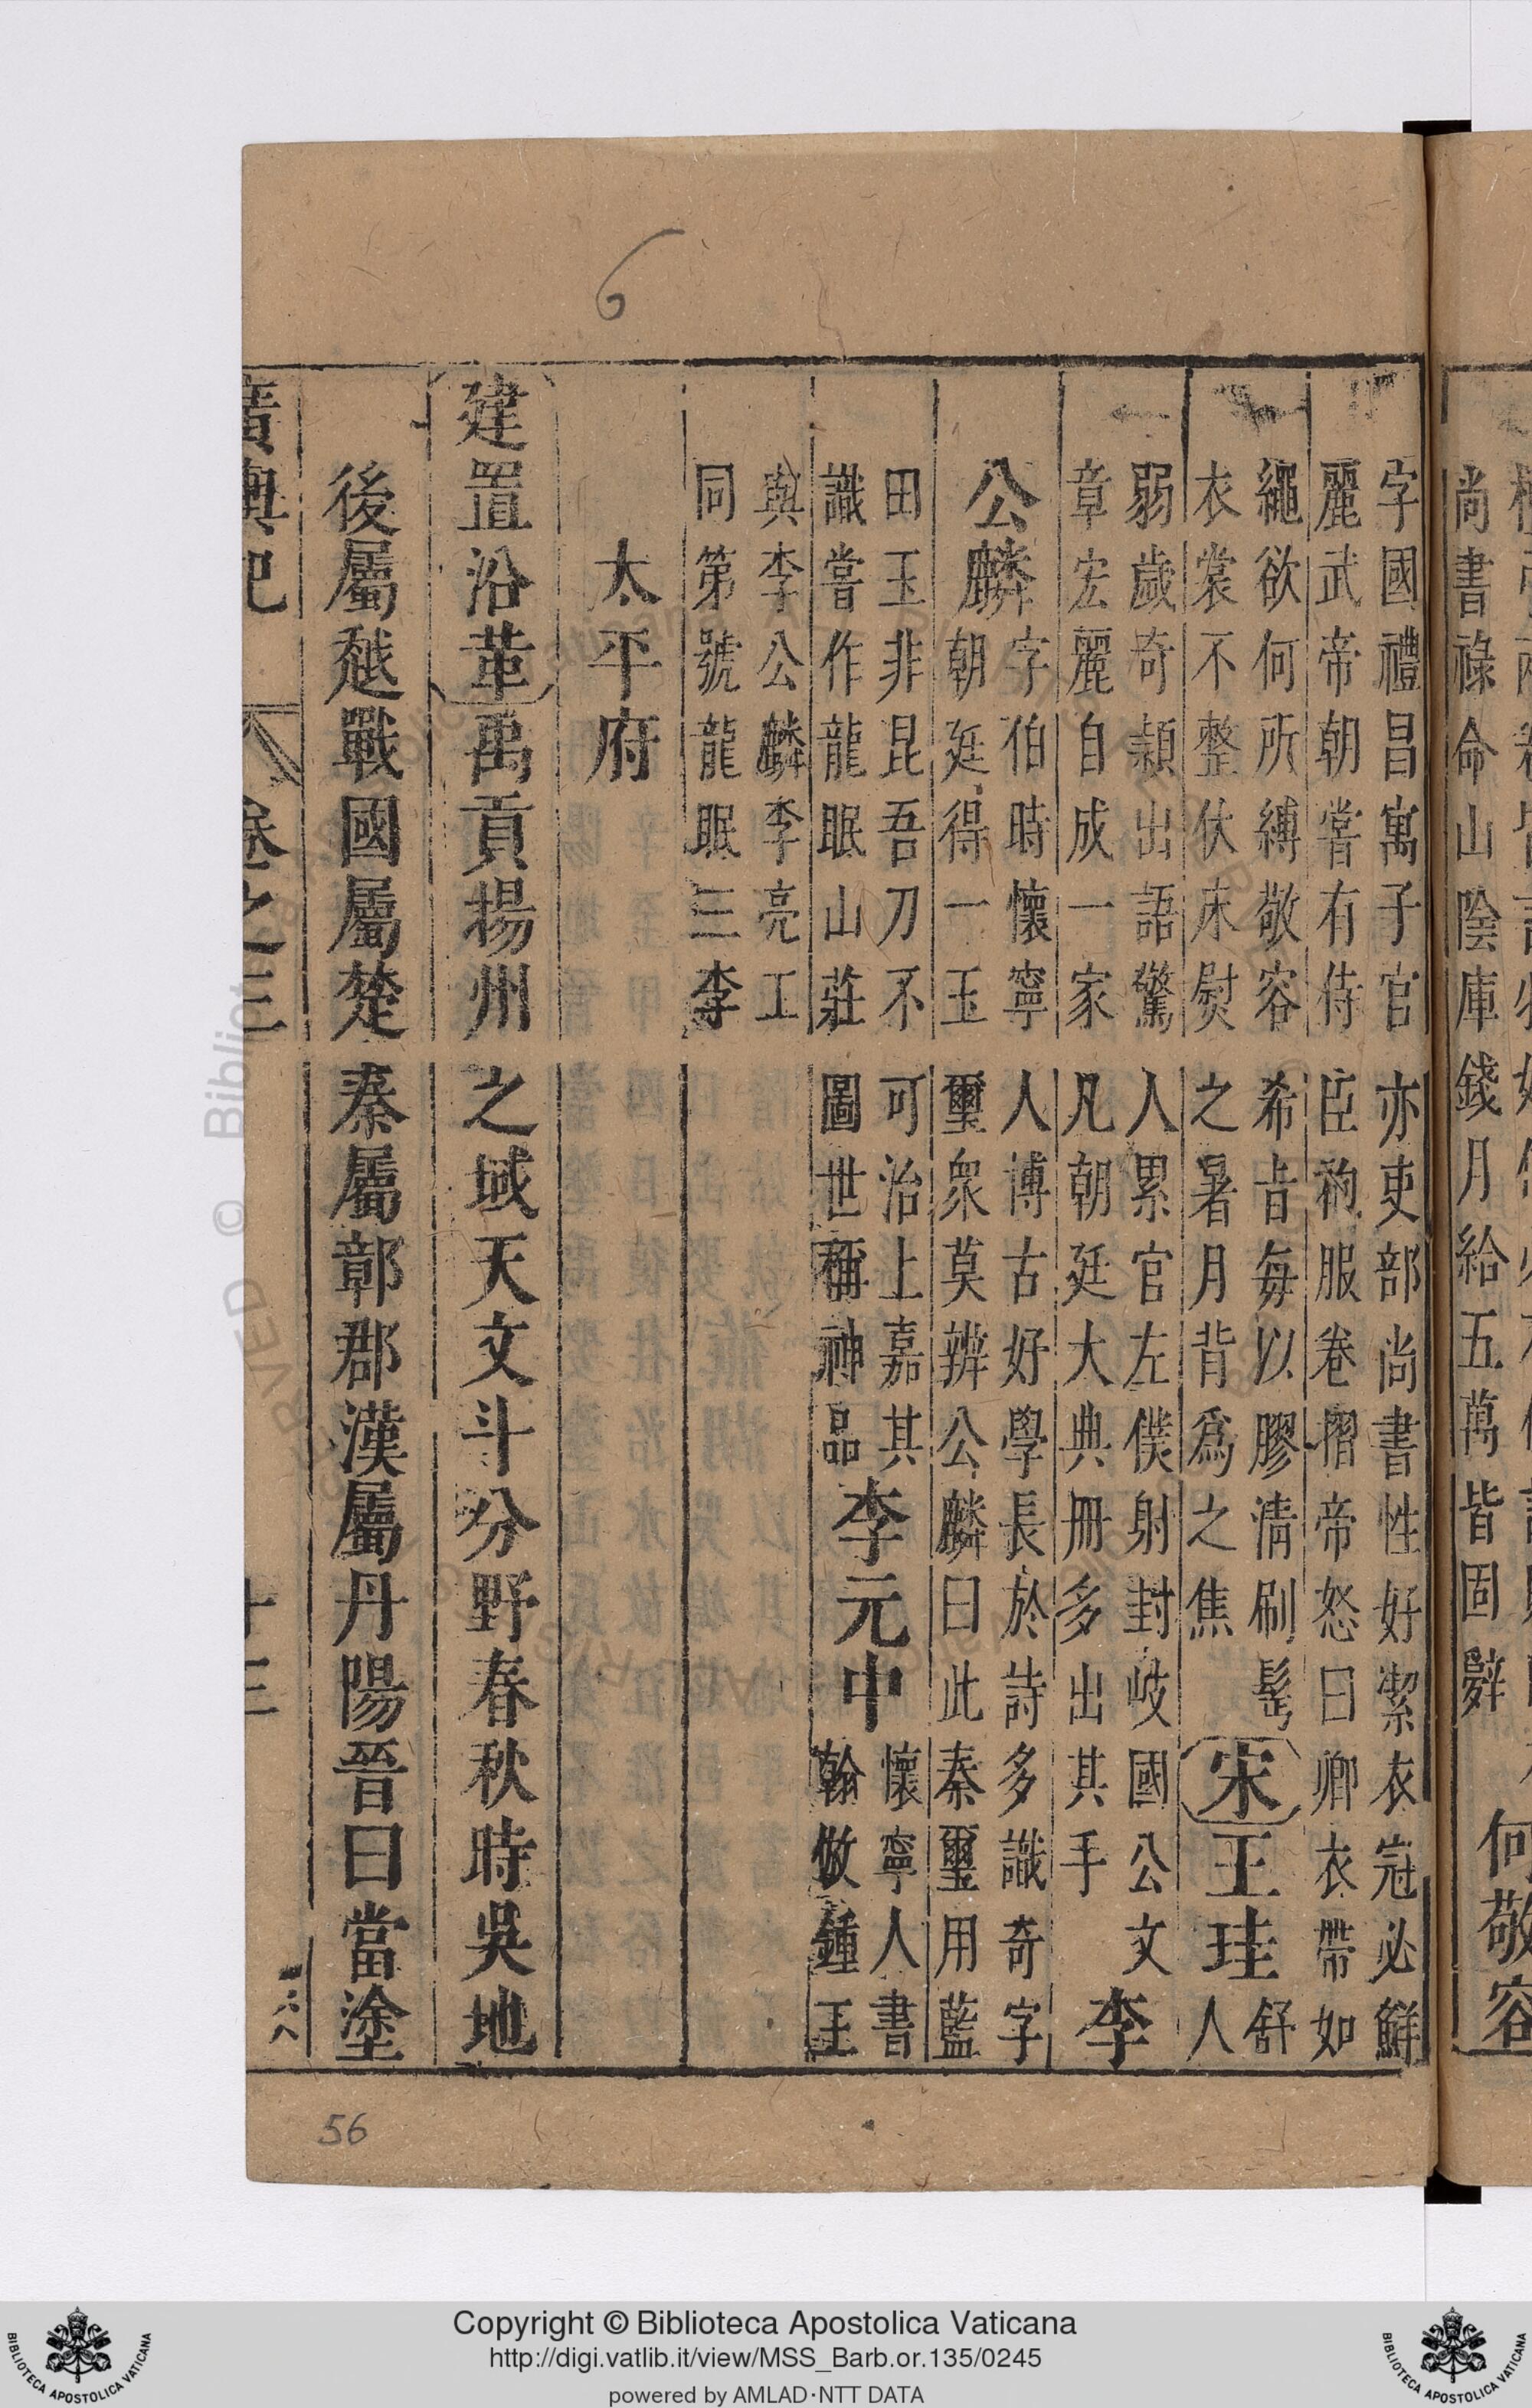 尚書祿命山陰庫錢月給五萬皆固辭
何敬容
字國禮昌寓子官亦吏部尚書性好潔衣冠必鮮
麗武帝朝嘗有侍臣袀服卷摺帝怒曰卿衣帶如
繩欲何所縛敬容希旨每以膠清刷髩
衣裳不整伏床熨之暑月背爲之焦
宋王珪
舒
人
弱歲奇穎出語驚人累官左僕射封岐國公文
章宏麗自成一家凡朝廷大典冊多出其手
李
公麟
字伯時懷寧人博古好學長於詩多識奇字
朝廷得一玉璽衆莫辨公麟曰此秦璽用藍
田玉非昆吾刀不可治上嘉其
識嘗作龍眠山莊圖世稱神品
李元中
懷寧人書
翰倣鍾王
與李公麟李亮工
同第號龍眠三李
太平府
建置沿革禹貢揚州之域天文斗分野春秋時吳地
後屬越戰國屬楚秦屬鄣郡漢屬丹陽晉曰當塗
廣輿記 卷之三 十三
6
56
Copyright © Biblioteca Apostolica Vaticana
http://digi.vatlib.it/view/MSS_Barb.or.135/0245
powered by AMLAD·NTT DATA
BIBLIOTECA APOSTOLICA VATICANA
BIBLIOTECA APOSTOLICA VATICANA